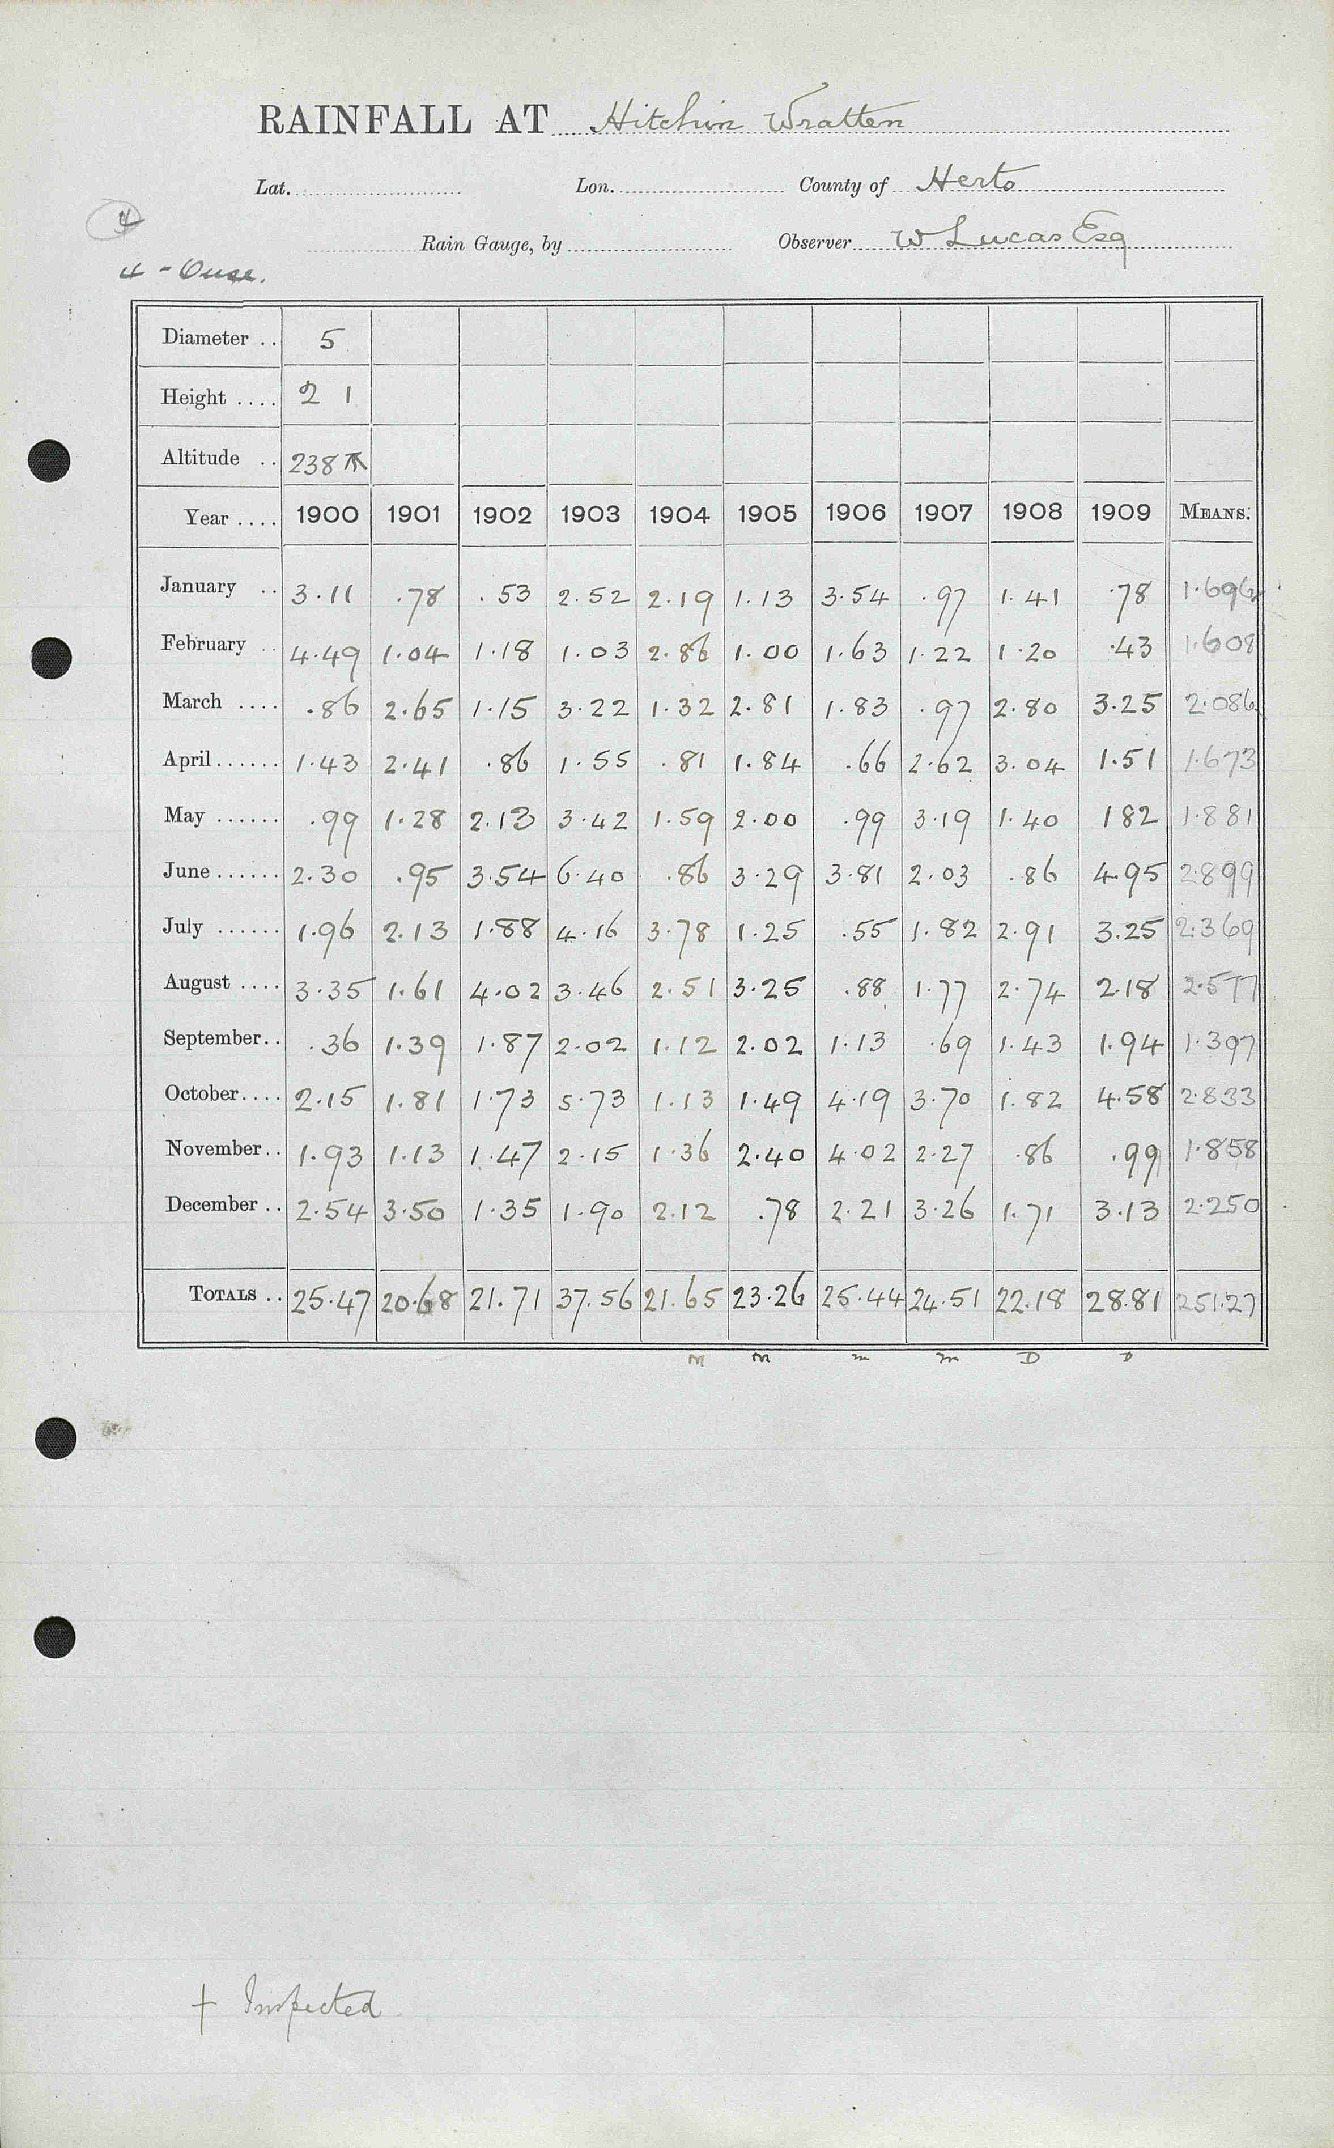 RAINFALL AT Hitchin Wratten
Lat. Lon. County of Herts
4
Rain Gauge, by Observer W Lucas Esq
4 - Ouse.
Diameter .. 5
Height .... 2 1
Altitude .. 238
Year .... 1900 1901 1902 1903 1904 1905 1906 1907 1908 1909 MEANS.
January .. 3.11 .78 .53 2.52 2.19 1.13 3.54 .97 1.41 .78 1.696
February .. 4.49 1.04 1.18 1.03 2.86 1.00 1.63 1.22 1.20 .43 1.608
March .... .86 2.65 1.15 3.22 1.32 2.81 1.83 .97 2.80 3.25 2.086
April...... 1.43 2.41 .86 1.55 .81 1.84 .66 2.62 3.04 1.51 1.673
May ...... .99 1.28 2.13 3.42 1.59 2.00 .99 3.19 1.40 182 1.881
June...... 2.30 .95 3.54 6.40 .86 3.29 3.81 2.03 .86 4.95 2.899
July ...... 1.96 2.13 1.88 4.16 3.78 1.25 .55 1.82 2.91 3.25 2.369
August .... 3.35 1.61 4.02 3.46 2.51 3.25 .88 1.77 2.74 2.18 2.577
September.. .36 1.39 1.87 2.02 1.12 2.02 1.13 .69 1.43 1.94 1.397
October.... 2.15 1.81 1.73 5.73 1.13 1.49 4.19 3.70 1.82 4.58 2.833
November.. 1.93 1.13 1.47 2.15 1.36 2.40 4.02 2.27 .86 .99 1.858
December .. 2.54 3.50 1.35 1.90 2.12 .78 2.21 3.26 1.71 3.13 2.250
TOTALS .. 25.47 20.68 21.71 37.56 21.65 23.26 25.44 24.51 22.18 28.81 251.27
M M m m D D
† Inspected